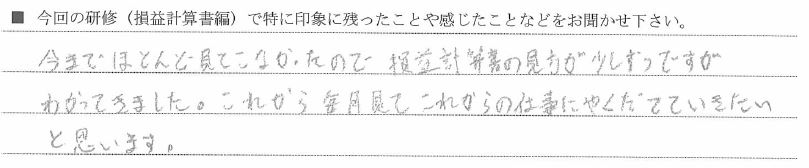 ■ 今回の研修（損益計算書編）で特に印象に残ったことや感じたことなどをお聞かせ下さい。
今までほとんど見てこなかったので 損益計算書の見方が少しずつですが
わかってきました。これから 毎月見て これからの仕事にやくだてていきたい
と思います。